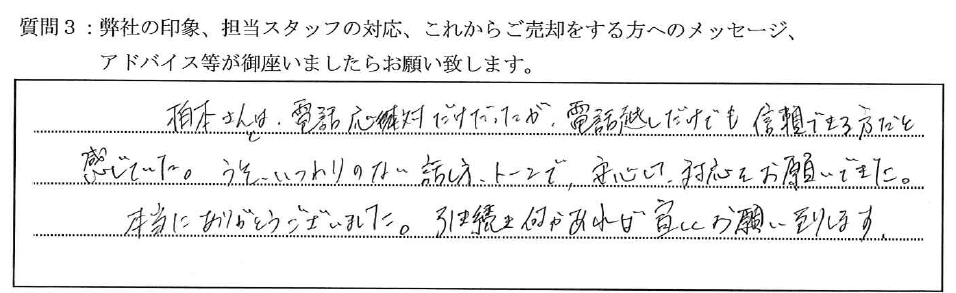 質問３：弊社の印象、担当スタッフの対応、これからご売却をする方へのメッセージ、
アドバイス等が御座いましたらお願い致します。
柏本さんと、電話応対だけだったが、電話越しだけでも信頼できる方だと
感じていた。うそ、いつわりのない話し方、トーンで、安心して、対応をお願いできた。
本当にありがとうございました。引き続き何かあれば宜しくお願い致します。